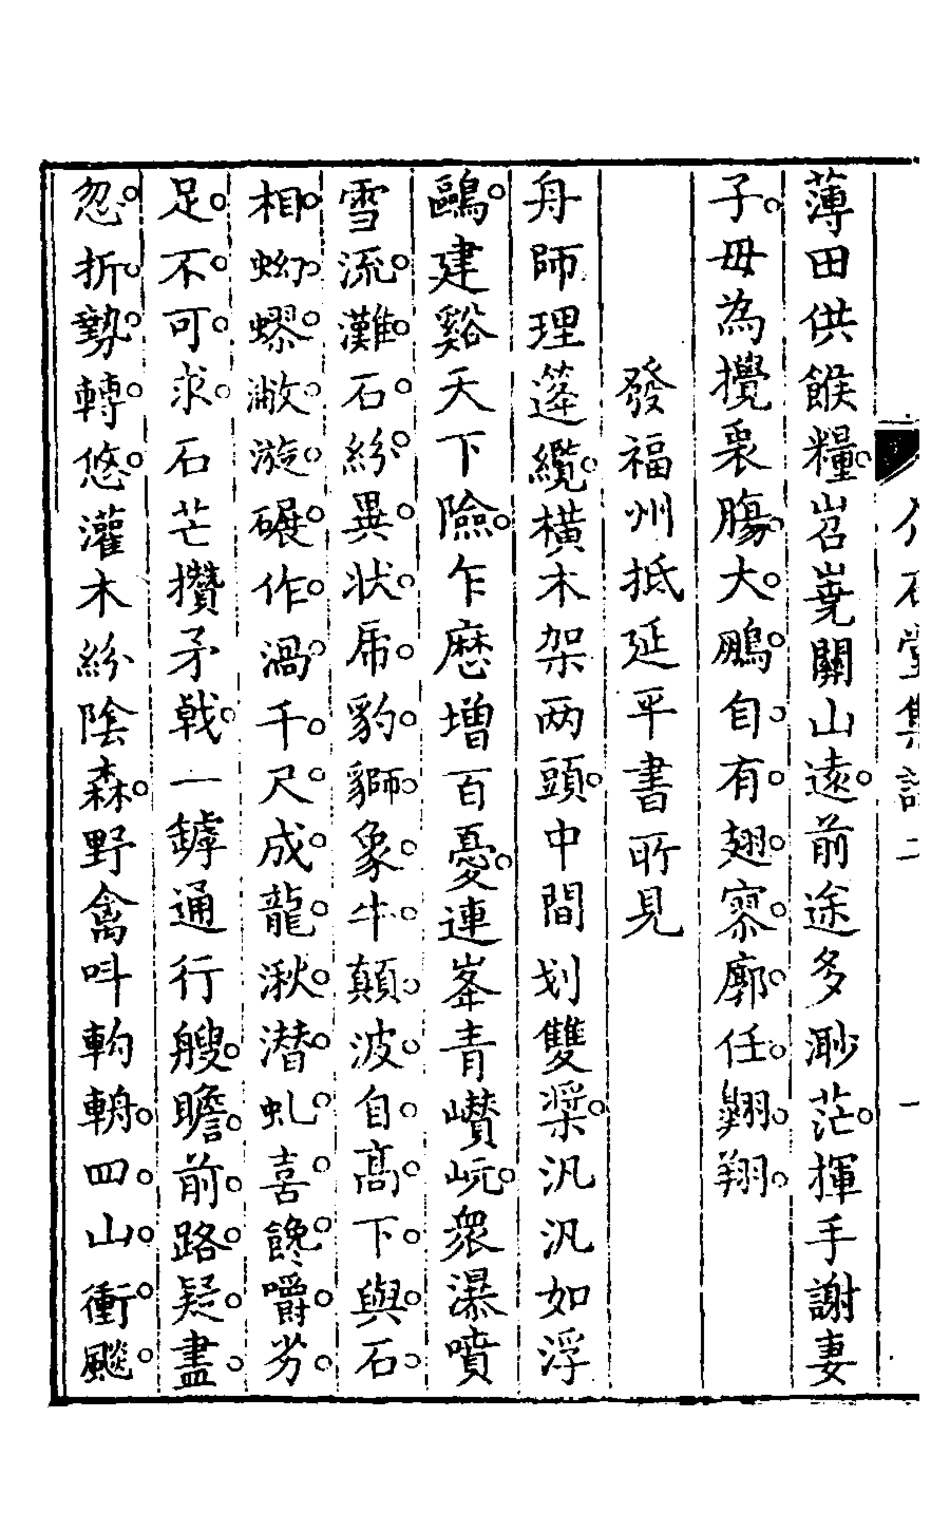 薄田供餱糧岧嶤關山遠前途多渺茫揮手謝妻
子毋為攪衷腸大鵬自有翅寥廓任翱翔
發福州抵延平書所見
舟師理篷纜橫木架兩頭中間划雙槳汎汎如浮
鷗建谿天下險乍歴增百憂連峯青巑岏衆瀑噴
雪流灘石紛異狀虎豹獅象牛顛波自高下與石
相蚴蟉漱漩碾作渦千尺成龍湫潛虬喜饞嚼劣
足不可求石芒攢矛戟一罅通行艘瞻前路疑盡
忽折勢轉悠灌木紛陰森野禽呌輈輈四山衝颷
石堂集詩二
一